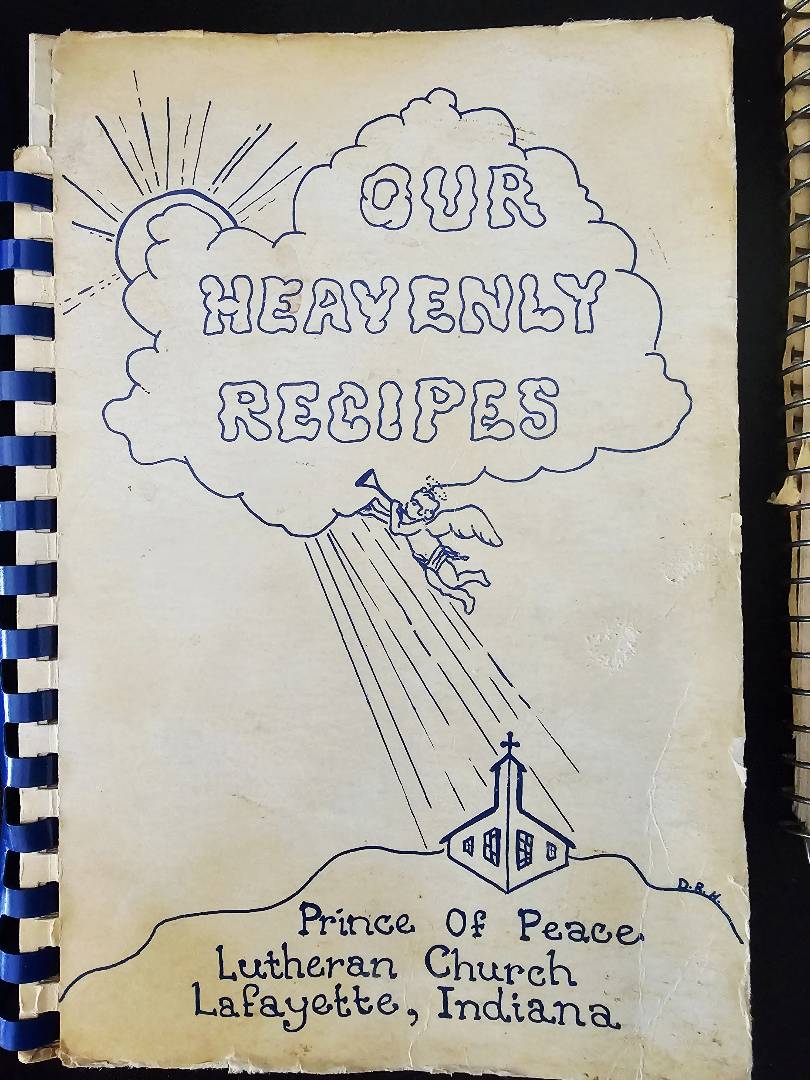 OUR
HEAVENLY
RECIPES
D.R.K.
Prince Of Peace
Lutheran Church
Lafayette, Indiana